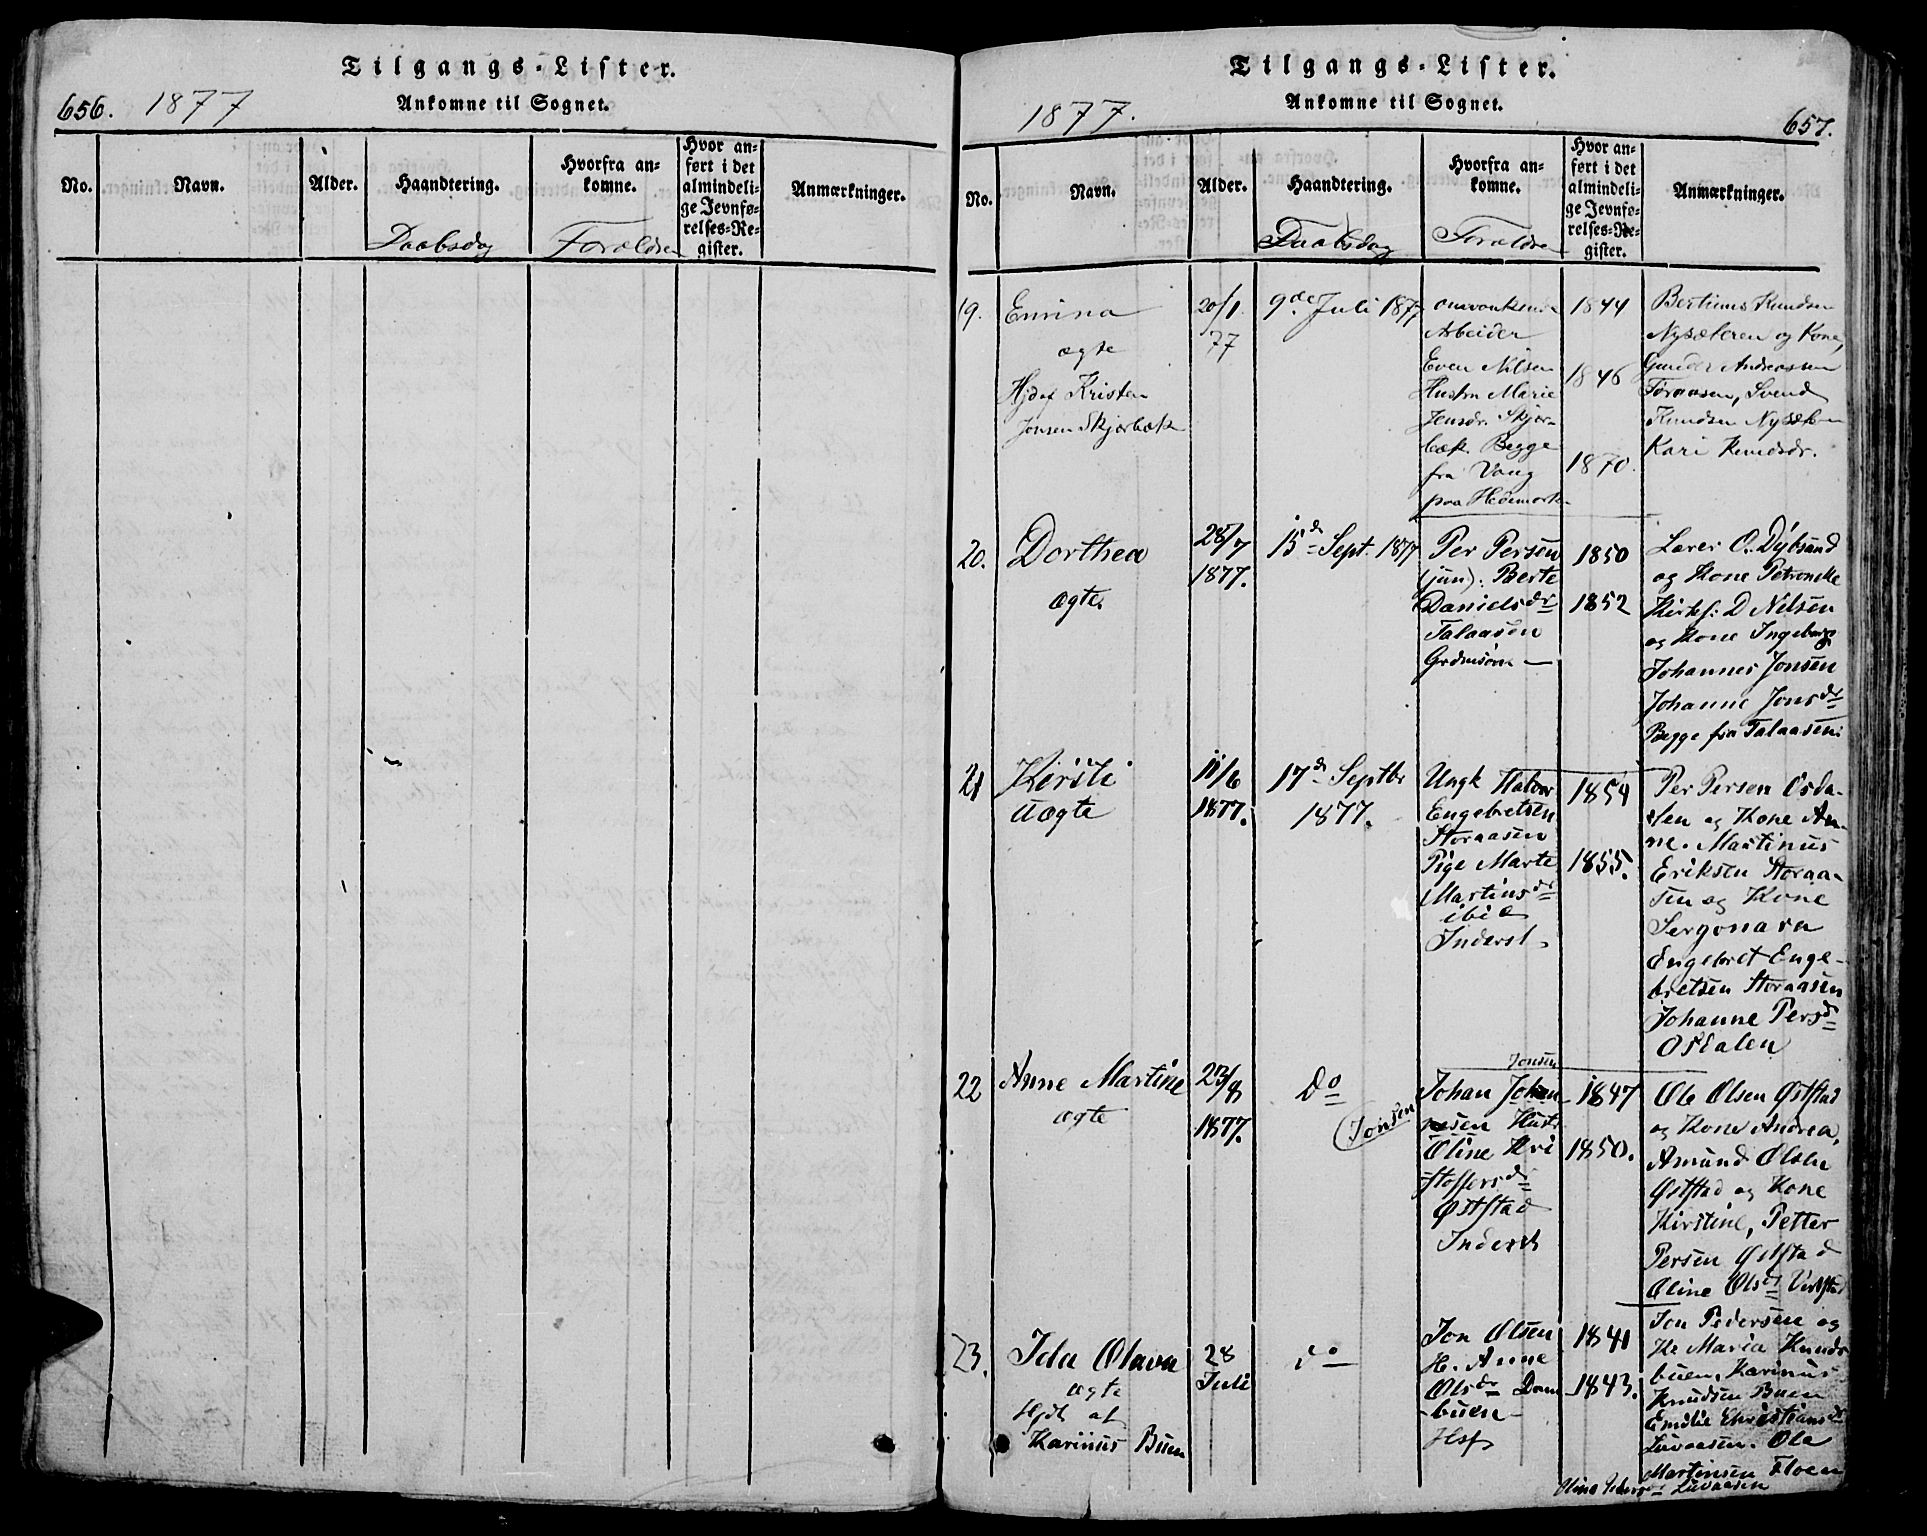 Tilgangs-Lister.
656. 1877
Ankomne til Sognet.
No.
Navn.
Alder.
Haandtering.
Daabsdag
Hvorfra an-
komne.
Forældre
Hvor an-
ført i det
almindeli-
ge Jevnfø-
relses-Re-
gister.
Anmærkninger.
Tilgangs-Lister.
Ankomne til Sognet.
1877.
657.
No.
Navn.
Alder.
Haandtering.
Daabsdag
Hvorfra an-
komne.
Forældre
Hvor an-
ført i det
almindeli-
ge Jevnfø-
relses-Re-
gister.
Anmærkninger.
19.
Emina
ægte
Hjdøf Kristen
Jonsen Skjærbæk
20/1
77
9de Juli 1877
omvankende
Arbeider
Even Nilsen
Hustru Marie
Jensdr. Skjær-
bæk. Begge
fra Vang
paa Hedemark-
1844
1846
1870.
Bertinus Knudsen
Nysæteren og Kone,
Gunder Andreassen
Foraasen, Svend
Knudsen Nysæteren
Kari Knudsdr.
20.
Dorthea
ægte.
28/7
1877.
15d Sept. 1877
Per Persen
(jun): Berte
Danielsdr
Talaasen
Grdmsøn
1850
1852
Lærer O. Dybsand
og Kone Petronelle
Kirkes: D Nilsen
og Kone Ingeborg
Johannes Jonsen
Johanne Jonsdr
Begge fra Talaasen.
21
Kirsti
Uægte
11/6
1877.
17d Septbr
1877.
Ungk Halvor
Engebretsen
Storaasen
Pige Marte
Martinsdr
ibid
Inderst
1854
1855.
Per Persen Osda-
len og Kone An-
ne. Martinus
Eriksen Storaa-
sen og Kone
Sergonara
Engebret Enge-
bretsen Storaasen
Johanne Persd
Osdalen
22
Anne Martine
ægte
23/8
1877.
Do
(Jonsen
Jonsen
Johan Johan-
nesen Hustr
Oline Kri
stoffersdr
Øststad
Inderst
1847
1850.
Ole Olsen Øststad
og Kone Andrea,
Amund Olsen
Øststad og Kone
Kirstine, Petter
Persen Øststad
Oline Olsd Vestst
23.
Ida Olava
ægte
Hjdt af
Karinus Buen
28
Juli
do
Jon Olsen
H. Anne
Olsdr
-buen
Hsf
1841
1843.
Jon Pedersen og
K. Maria Knuds
buen, Karinus
Knudsen Buen
Emilie Christiansdr
Luvaasen. Ole
Martinsen Floen
Luvaasen